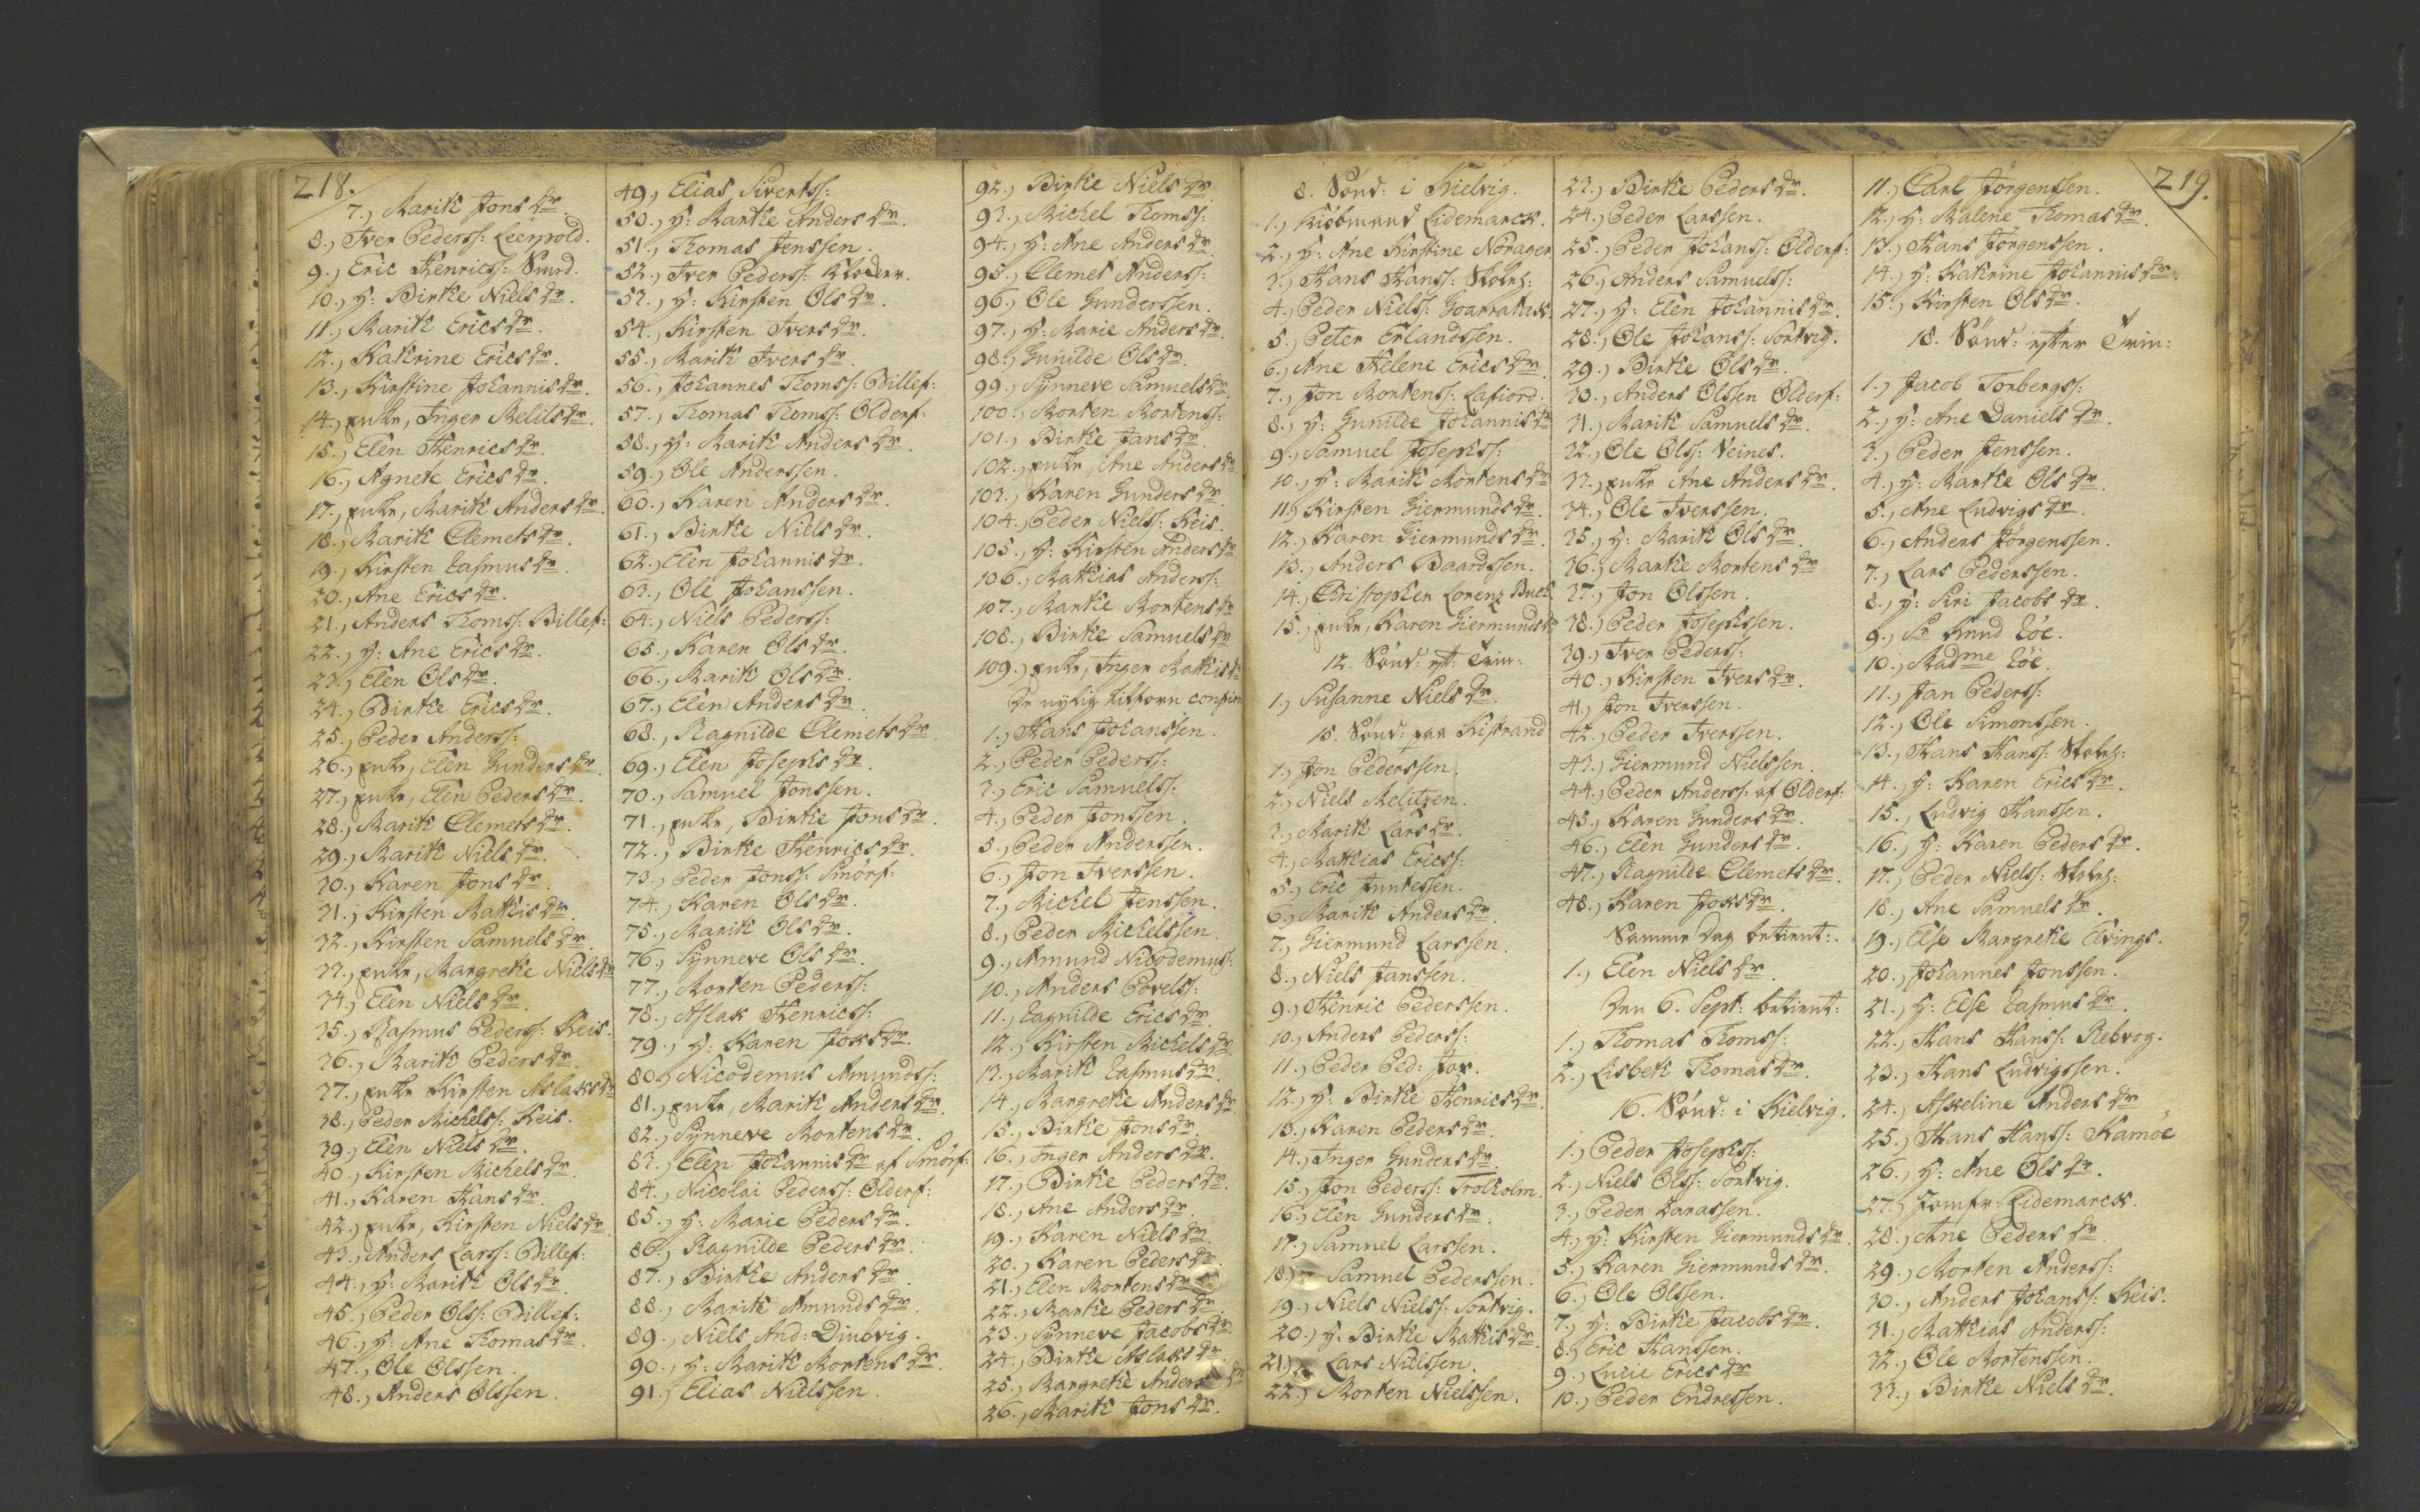 218.
7., Marith Jons dr.
8., Iver Peders: Leerpold.
9., Eric Henrics: Smed.
10., h: Birthe Niels dr.
11., Marith Erics dr.
12., Kathrine Erics dr.
13., Kirstine Johannis dr.
14., enke, Inger Melils dr.
15., Elen Henrics dr.
16., Agnete Erics dr.
17., enke, Marith Anders dr.
18., Marith Clemets dr.
19., Kirsten Rasmus dr.
20., Ane Erics dr.
21., Anders Thoms: Billef:
22., h: Ane Erics dr.
23., Elen Ols dr.
24., Birthe Erics dr.
25., Peder Anders:
26., enke, Elen Gunders dr.
27., enke, Elen Peders dr.
28., Marith Clemets dr.
29., Marith Niels dr.
30., Karen Jons dr.
31., Kirsten Mathis dr.
32., Kirsten Samuels dr.
33., enke, Margrethe Niels dr
34., Elen Niels dr.
35., Rasmus Peders: Keis.
36., Marith Peders dr.
37., enke Kirsten Aslaks dr
38., Peder Michels: Keis.
39., Elen Niels dr.
40., Kirsten Michels dr.
41., Karen Hans dr.
42., enke, Kirsten Niels dr
43., Anders Lars: Billef:
44., h: Marith Ols dr.
45., Peder Ols: Billef:
46., h: Ane Thomas dr.
47., Ole Olssen.
48., Anders Olssen.
49., Elias Siverts:
50., h: Marthe Anders dr.
51., Thomas Jenssen.
52., Iver Peders:
53., h: Kirsten Ols dr.
54., Kirsten Ivers dr.
55., Marith Ivers dr.
56., Johannes Thoms: Billef:
57., Thomas Thoms: Olderf:
58., h: Marith Anders dr.
59., Ole Anderssen.
60., Karen Anders dr.
61., Birthe Niels dr.
62., Elen Johannis dr.
63., Ole Johanssen.
64., Niels Peders:
65., Karen Ols dr.
66., Marith Ols dr.
67., Elen Anders dr.
68., Ragnilde Clemets dr.
69., Elen Josephs dr.
70., Samuel Jonssen.
71., enke, Birthe Jons dr.
72., Birthe Henrics dr.
73., Peder Jons: Smörf:
74., Karen Ols dr.
75., Marith Ols dr.
76., Synneve Ols dr.
77., Morten Peders:
78., Aslak Henrics:
79., h: Karen Joks dr.
80., Nicodemus Amunds:
81., enke, Marith Anders dr.
82., Synneve Mortens dr.
83., Elen Johannis dr af Smörf:
84., Nicolai Peders: Olderf:
85., h: Marie Peders dr.
86., Ragnilde Peders dr.
87., Birthe Anders dr.
88., Marith Amunds dr.
89., Niels And: Diubvig.
90., h: Marith Mortens dr.
91., Elias Nielssen.
92., Birthe Niels dr
93., Michel Thoms:
94., h: Ane Anders dr.
95., Clemet Anders:
96., Ole Gunderssen.
97., h: Marie Anders dr.
98., Gunilde Ols dr.
99., Synneve Samuels dr.
100., Morten Mortens:
101., Birthe Jans dr.
102., enke, Ane Anders dr
103., Karen Gunders dr.
104., Peder Niels: Keis.
105., h: Kirsten Anders dr
106., Mathias Anders:
107., Marthe Mortens dr
108., Birthe Samuels dr
109., enke, Inger Mathis dr
De nylig confirm
1., Hans Johanssen.
2., Peder Peders:
3., Eric Samuels:
4., Peder Jonssen.
5., Peder Anderssen.
6., Jon Iverssen.
7., Michel Jenssen.
8., Peder Michelssen.
9., Amund Nicodemus:
10., Anders Povels:
11., Ragnilde Erics dr.
12., Kirsten Michels dr.
13., Marith Rasmus dr.
14., Margrethe Anders dr.
15., Birthe Jons dr.
16., Inger Anders dr.
17., Birthe Peders dr.
18., Ane Anders dr.
19., Karen Niels dr.
20., Karen Peders dr.
21., Elen Mortens dr
22., Marthe Peders dr.
23., Synneve Jacobs dr.
24., Birthe Aslaks dr
25., Margrethe Anders dr
26., Marith Jons dr.
219.
8. Sönd: i Kielvig.
1., Kiöbmand Lidemarck.
2., h: Ane Kirstine Norager
3., Hans Hans:
4., Peder Niels:
5., Peter Erlandssen.
6., Ane Helene Erics dr.
7., Jon Mortens: Lafiord.
8., h: Gunilde Johannis dr
9., Samuel Josephs:
10., h: Marith Mortens dr
11., Kirsten Giermunds dr.
12., Karen Giermunds dr.
13., Anders Baardssen.
14., Christopher Lorenz Buch
15., enke, Karen Giermunds dr
12. Sönd: eft: Trin:
1., Susanne Niels dr.
15. Sönd: paa Kistrand
1., Jon Pederssen.
2., Niels Melitzen.
3., Marith Lars dr.
4., Mathias Erics:
5., Eric Juntessen.
6., Marith Anders dr.
7., Giermund Larssen.
8., Niels Janssen.
9., Henric Pederssen.
10., Anders Peders:
11., Peder Ped: Jox.
12., h: Birthe Henrics dr.
13., Karen Peders dr.
14., Inger Gunders dr.
15., Jon Peders: Trolholm.
16., Elen Gunders dr.
17., Samuel Larssen.
18., Samuel Pederssen.
19., Niels Niels: Sortvig.
20., h: Birthe Mathis dr.
21., Lars Nielssen.
22., Morten Nielssen.
23., Birthe Peders dr.
24., Peder Larssen.
25., Peder Johans: Olderf:
26., Anders Samuels:
27., h: Elen Johannis dr.
28., Ole Johans: Sortvig.
29., Birthe Ols dr.
30., Anders Olssen Olderf:
31., Marith Samuels dr.
32., Ole Ols: Veines.
33., enke Ane Anders dr.
34., Ole Iverssen.
35., h: Marith Ols dr.
36., Marthe Mortens dr
37., Jon Olssen.
38., Peder Josephssen.
39., Iver Peders:
40., Kirsten Ivers dr.
41., Jon Iverssen.
42., Peder Iverssen.
43., Giermund Nielssen.
44., Peder Anders: af Olderf:
45., Karen Gunders dr.
46., Elen Gunders dr.
47., Ragnilde Clemets dr.
48., Karen Joks dr.
Samme Dag betient:
1., Elen Niels dr.
Den 6. Sept: betient:
1., Thomas Thoms:
2., Lisbeth Thomas dr.
16. Sönd: i Kielvig.
1., Peder Josephs:
2., Niels Ols: Sortvig.
3., Peder Larassen.
4., h: Kirsten Giermunds dr.
5., Karen Giermunds dr.
6., Ole Olssen.
7., h: Birthe Jacobs dr.
8., Eric Hanssen.
9., Lucie Erics dr
10., Peder Endressen.
11., Carl Jörgenssen.
12., h: Malene Thomas dr.
13., Hans Jörgenssen.
14., h: Kathrine Johannis dr.
15., Kirsten Ols dr.
18. Sönd: efter Trin:
1., Jacob Torbergs:
2., h: Ane Daniels dr.
3., Peder Jenssen.
4., h: Marthe Ols dr.
5., Ane Ludvigs dr.
6., Anders Jörgenssen.
7., Lars Pederssen.
8., h: Siri Jacobs dr.
9., Sr Knud Röe.
10., Madme Röe.
11., Jan Peders:
12., Ole Simonssen.
13., Hans Hans:
14., h: Karen Erics dr.
15., Ludvig Hanssen.
16., h: Karen Peders dr.
17., Peder Niels:
18., Ane Samuels dr.
19., Else Margrethe Elvings.
20., Johannes Jonssen.
21., h: Else Rasmus dr.
22., Hans Hans: Rebvog.
23., Hans Ludvigssen.
24., Asseline Anders dr
25., Hans Hans: Kamöe
26., h: Ane Ols dr.
27., Jomfr: Lidemarck.
28., Ane Peders dr
29., Morten Anders:
30., Anders Johans: Keis.
31., Mathias Anders:
32., Ole Mortenssen.
33., Birthe Niels dr.